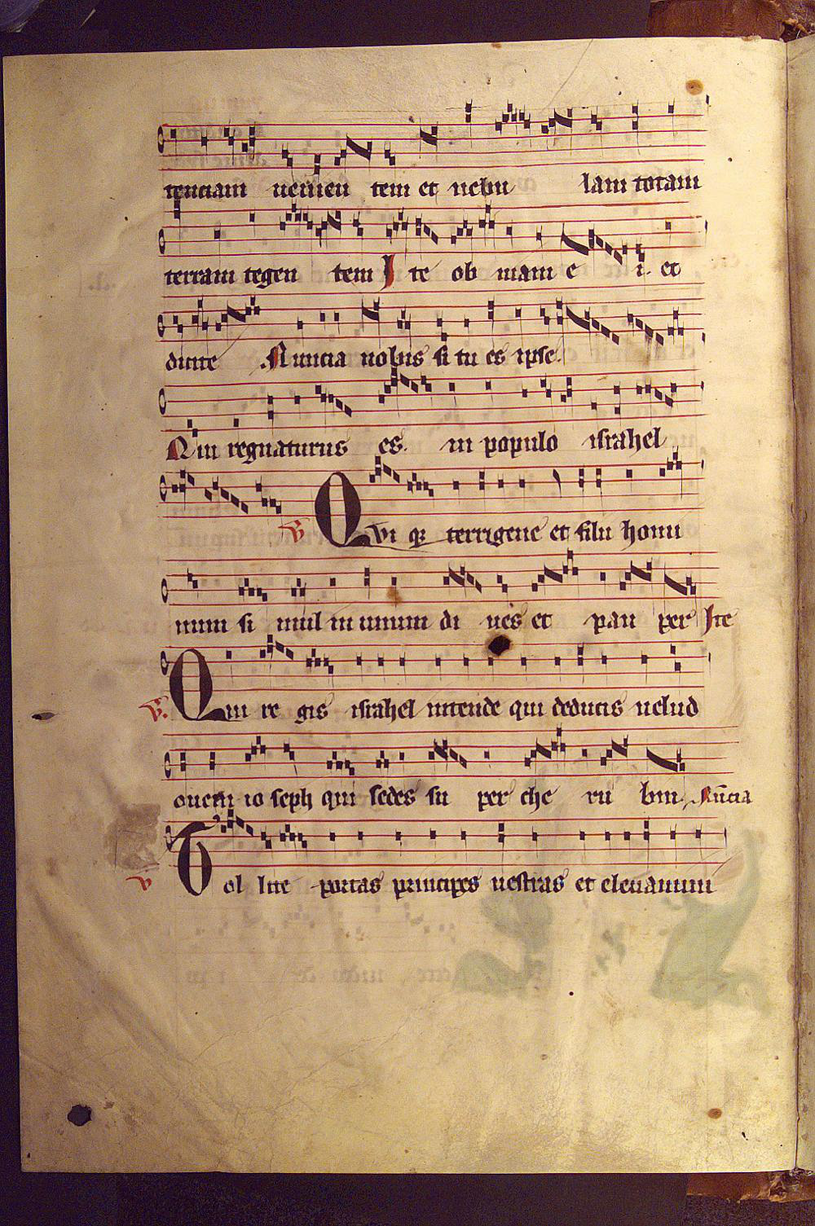 tenciam uenien tem et nebu lam totam
terram tegen tem Ite ob uiam e i. et
dicite Nuncia nobis si tu es ipse.
Qui regnaturus es. in populo israhel
V Qvi q; terrigene et filii homi
num si mul in unum di ues et pau per Ite
V. Qui re gis israhel intende qui deducis uelud
ouem io seph qui sedes su per che ru bin. Nūcia
V Tol lite portas principes uestras et eleuamini